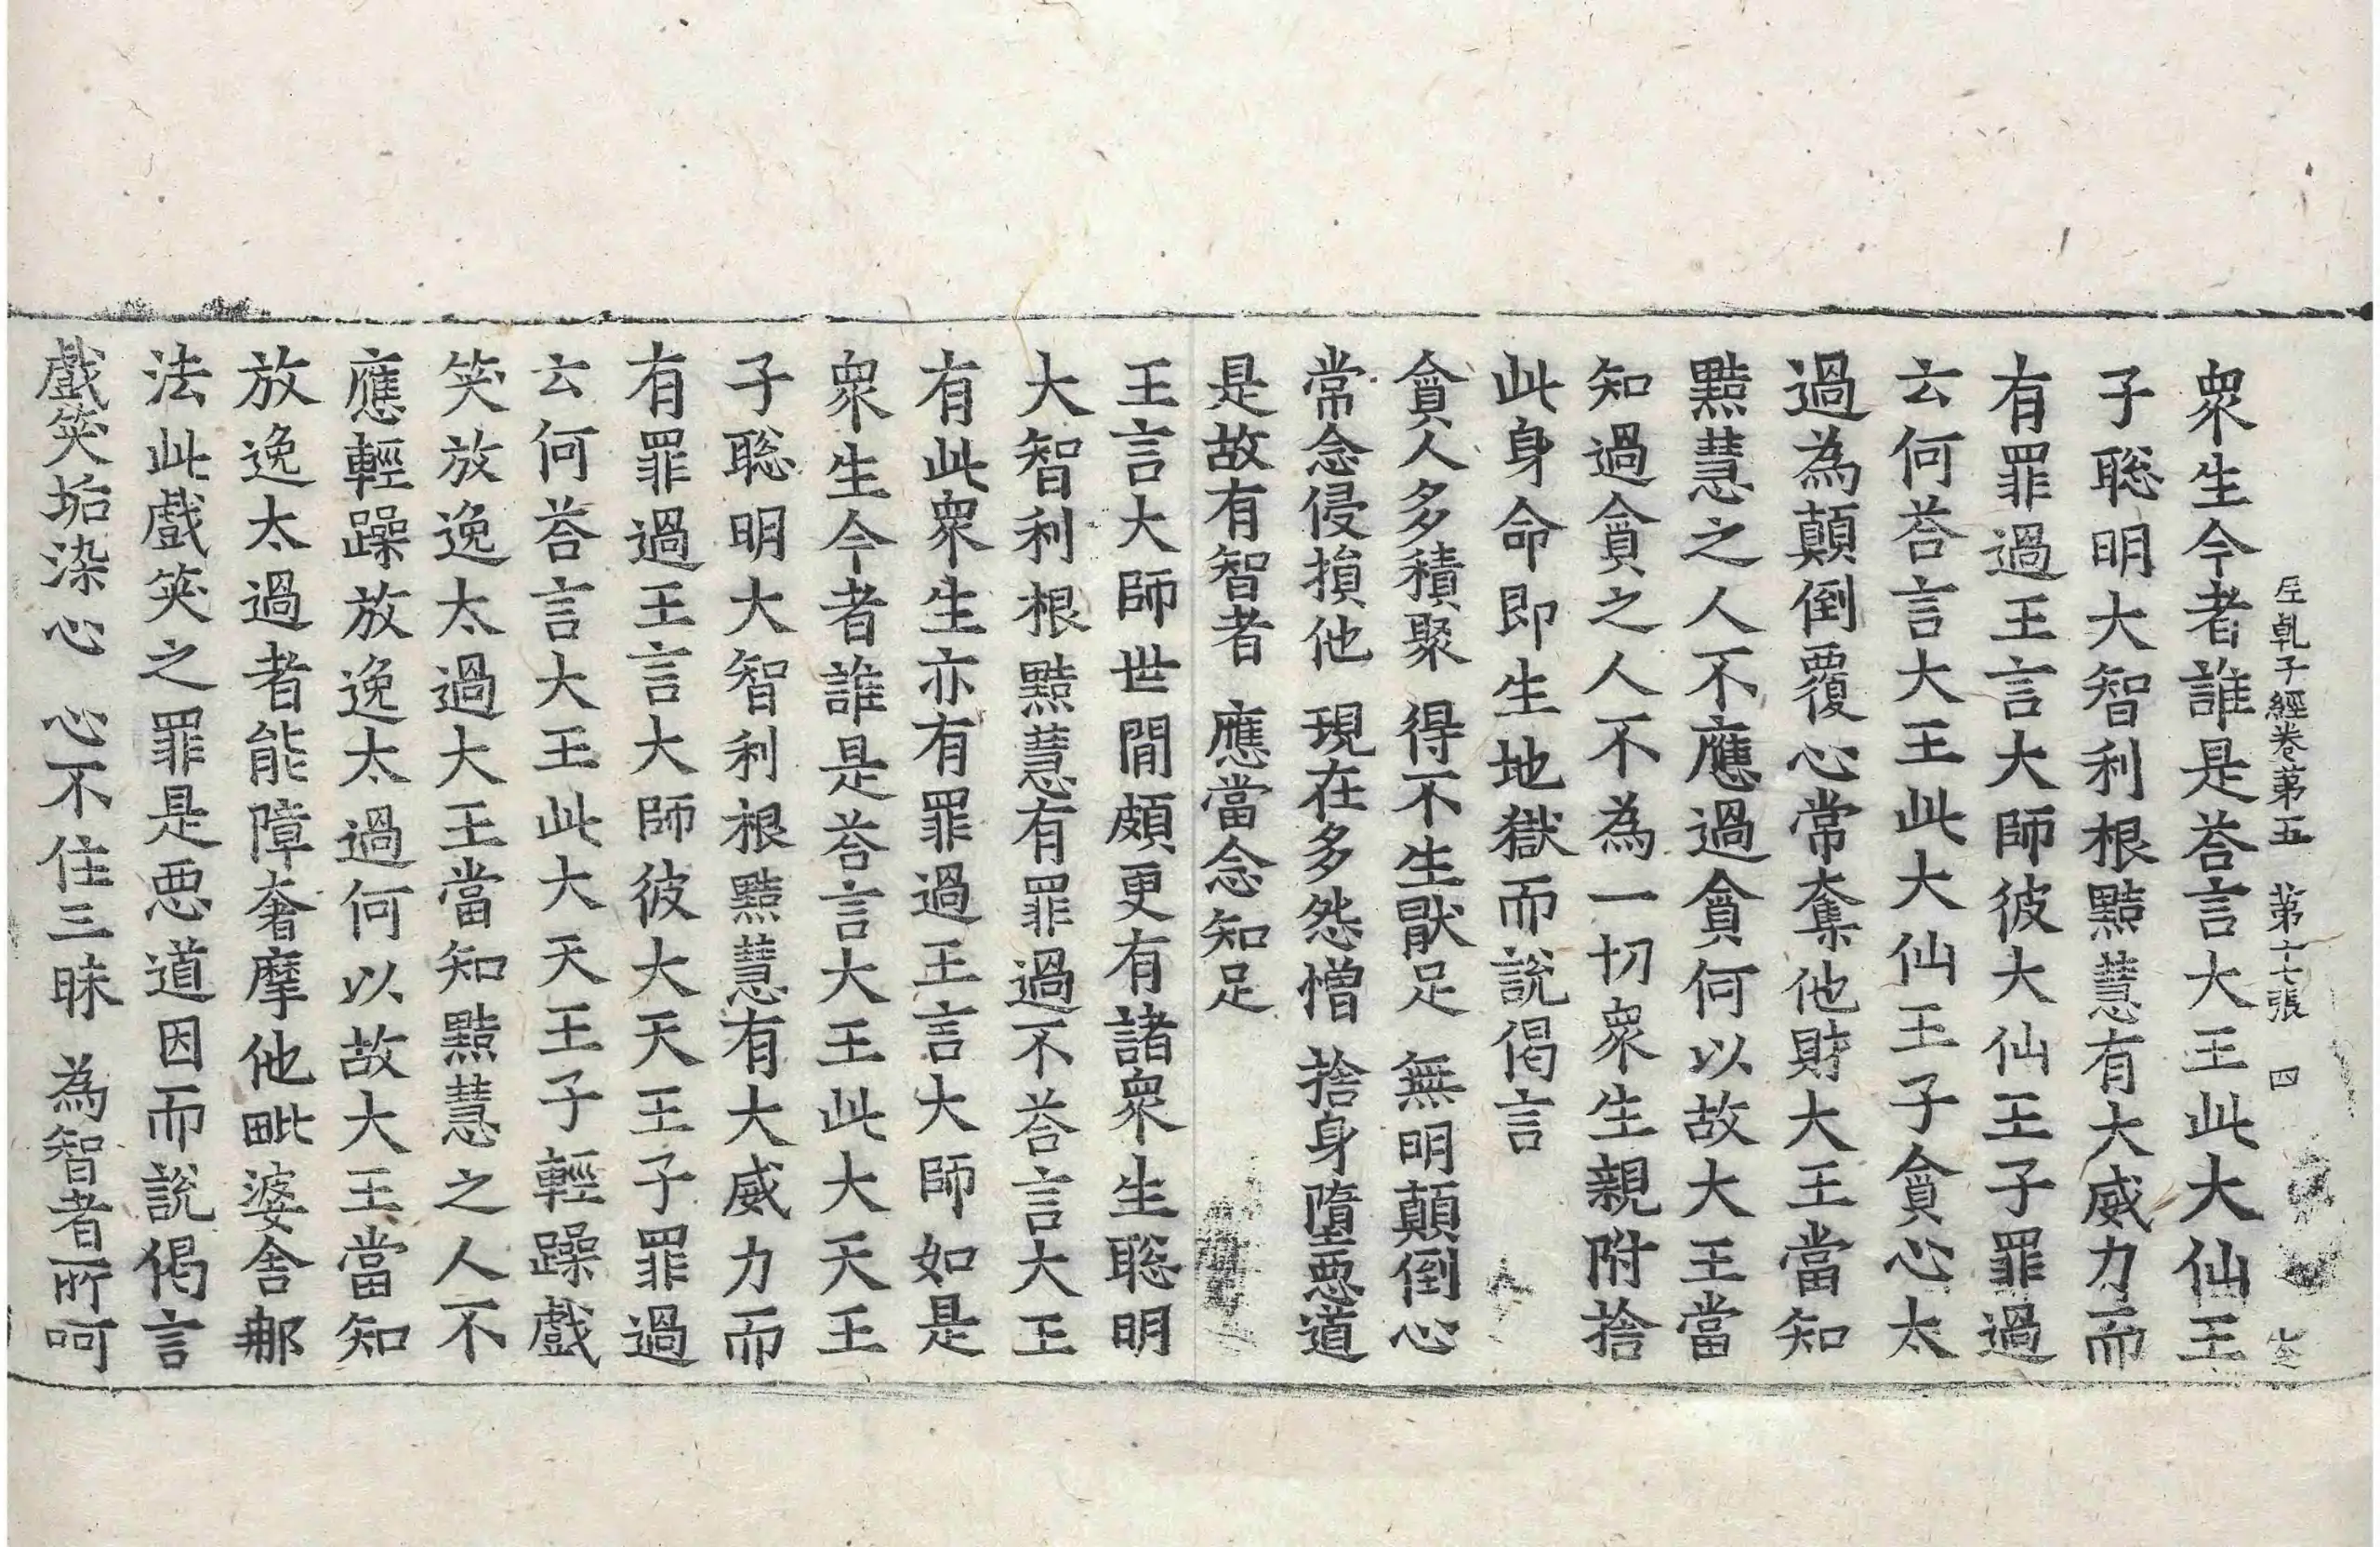 尼乹子經卷第五　第十七張　四
衆生今者誰是荅言大王此大仙王
子聡明大智利根黠慧有大威力而
有罪過王言大師彼大仙王子罪過
云何荅言大王此大仙王子貪心太
過為顛倒覆心常奪他財大王當知
黠慧之人不應過貪何以故大王當
知過貪之人不為一切衆生親附捨
此身命即生地獄而說偈言
貪人多積聚　得不生猒足　無明顛倒心
常念侵損他　現在多怨憎　捨身墮惡道
是故有智者　應當念知足
王言大師世間頗更有諸衆生聡明
大智利根黠慧有罪過不荅言大王
有此衆生亦有罪過王言大師如是
衆生今者誰是荅言大王此大天王
子聡明大智利根黠慧有大威力而
有罪過王言大師彼大天王子罪過
云何荅言大王此大天王子輕躁戲
笑放逸太過大王當知黠慧之人不
應輕躁放逸太過何以故大王當知
放逸太過者能障奢摩他毗婆舍那
法此戲笑之罪是惡道因而說偈言
戲笑垢染心　心不住三昧　為智者所呵